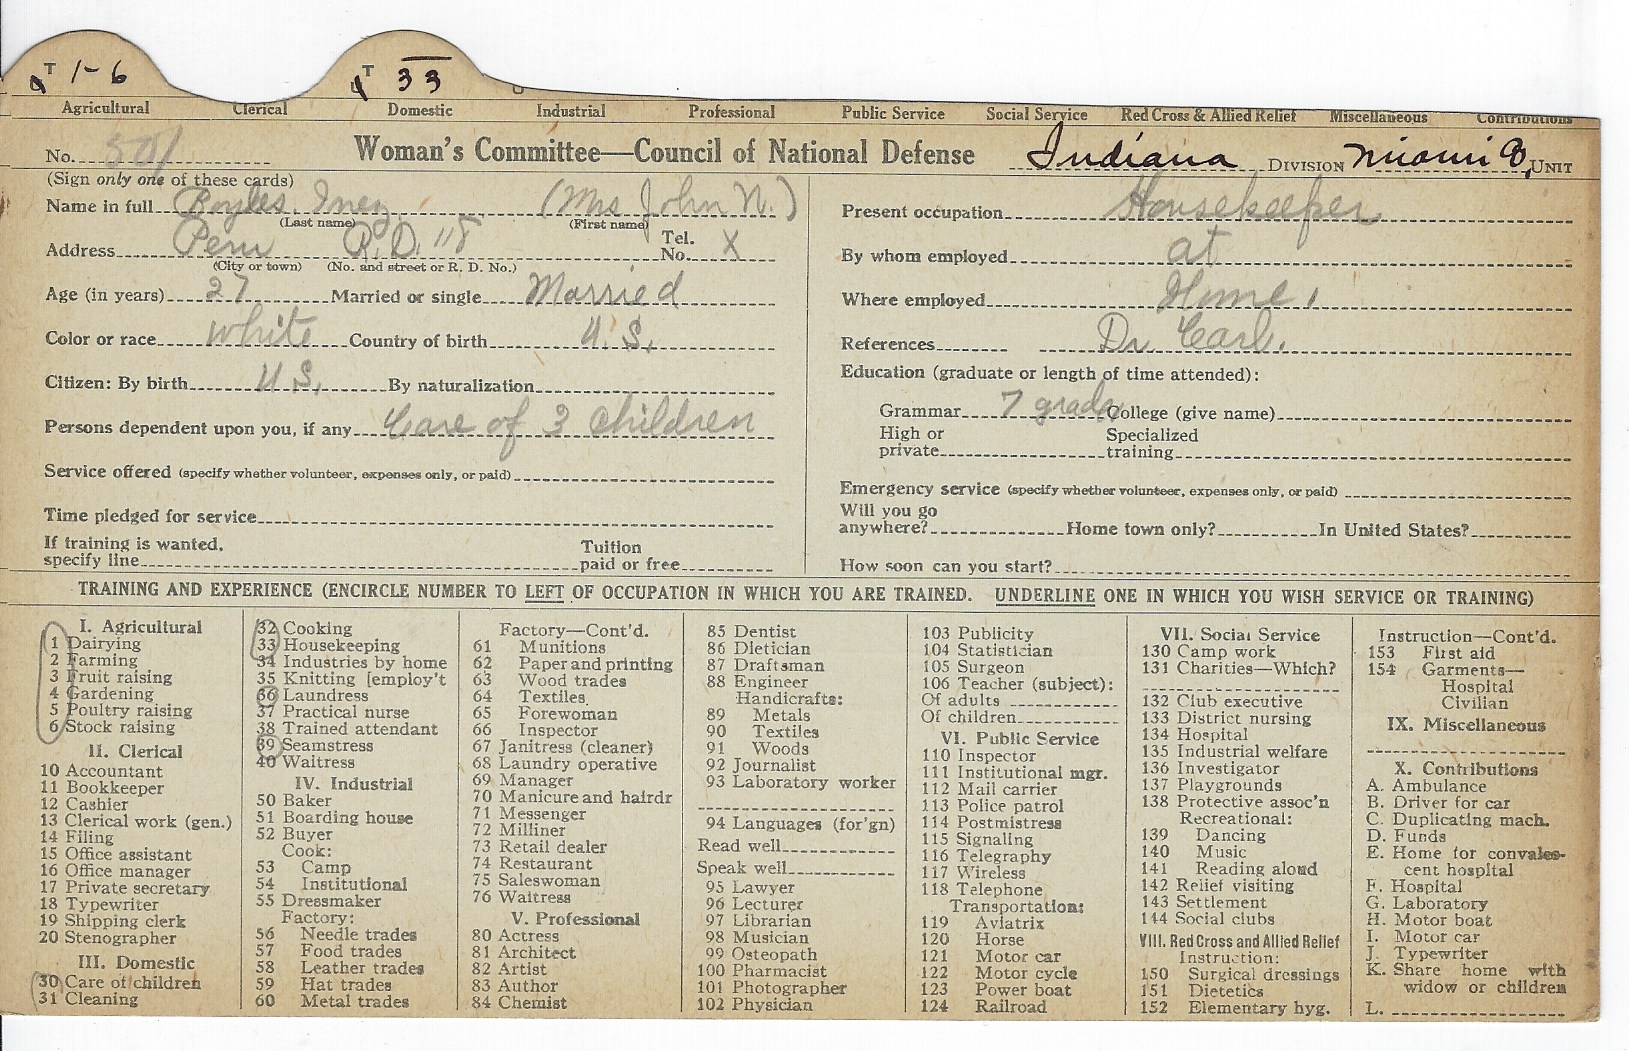 T 1-6 T 33
Agricultural Clerical Domestic Industrial Professional Public Service Social Service Red Cross & Allied Relief Miscellaneous Contributions
No. 501 Woman's Committee—Council of National Defense Indiana DIVISION Miami 8, UNIT
(Sign only one of these cards)
Name in full Boyles, Inez (Mrs John N.)
(Last name) (First name)
Address Peru R.D. "8 Tel. No. X
(City or town) (No. and street or R. D. No.)
Age (in years) 27 Married or single Married
Color or race white Country of birth U.S.
Citizen: By birth U.S. By naturalization
Persons dependent upon you, if any Care of 3 children
Service offered (specify whether volunteer, expenses only, or paid)
Time pledged for service
If training is wanted, specify line Tuition paid or free
Present occupation Housekeeper
By whom employed at
Where employed Home.
References Dr Carl.
Education (graduate or length of time attended):
Grammar 7 grade College (give name)
High or private Specialized training
Emergency service (specify whether volunteer, expenses only, or paid)
Will you go anywhere? Home town only? In United States?
How soon can you start?
TRAINING AND EXPERIENCE (ENCIRCLE NUMBER TO LEFT OF OCCUPATION IN WHICH YOU ARE TRAINED. UNDERLINE ONE IN WHICH YOU WISH SERVICE OR TRAINING)
I. Agricultural
1 Dairying
2 Farming
3 Fruit raising
4 Gardening
5 Poultry raising
6 Stock raising
II. Clerical
10 Accountant
11 Bookkeeper
12 Cashier
13 Clerical work (gen.)
14 Filing
15 Office assistant
16 Office manager
17 Private secretary
18 Typewriter
19 Shipping clerk
20 Stenographer
III. Domestic
30 Care of children
31 Cleaning
32 Cooking
33 Housekeeping
34 Industries by home
35 Knitting [employ't
36 Laundress
37 Practical nurse
38 Trained attendant
39 Seamstress
40 Waitress
IV. Industrial
50 Baker
51 Boarding house
52 Buyer
Cook:
53 Camp
54 Institutional
55 Dressmaker
Factory:
56 Needle trades
57 Food trades
58 Leather trades
59 Hat trades
60 Metal trades
Factory—Cont'd.
61 Munitions
62 Paper and printing
63 Wood trades
64 Textiles
65 Forewoman
66 Inspector
67 Janitress (cleaner)
68 Laundry operative
69 Manager
70 Manicure and hairdr
71 Messenger
72 Milliner
73 Retail dealer
74 Restaurant
75 Saleswoman
76 Waitress
V. Professional
80 Actress
81 Architect
82 Artist
83 Author
84 Chemist
85 Dentist
86 Dietician
87 Draftsman
88 Engineer
Handicrafts:
89 Metals
90 Textiles
91 Woods
92 Journalist
93 Laboratory worker
94 Languages (for'gn)
Read well
Speak well
95 Lawyer
96 Lecturer
97 Librarian
98 Musician
99 Osteopath
100 Pharmacist
101 Photographer
102 Physician
103 Publicity
104 Statistician
105 Surgeon
106 Teacher (subject):
Of adults
Of children
VI. Public Service
110 Inspector
111 Institutional mgr.
112 Mail carrier
113 Police patrol
114 Postmistress
115 Signaling
116 Telegraphy
117 Wireless
118 Telephone
Transportation:
119 Aviatrix
120 Horse
121 Motor car
122 Motor cycle
123 Power boat
124 Railroad
VII. Social Service
130 Camp work
131 Charities—Which?
132 Club executive
133 District nursing
134 Hospital
135 Industrial welfare
136 Investigator
137 Playgrounds
138 Protective assoc'n
Recreational:
139 Dancing
140 Music
141 Reading aloud
142 Relief visiting
143 Settlement
144 Social clubs
VIII. Red Cross and Allied Relief
Instruction:
150 Surgical dressings
151 Dietetics
152 Elementary hyg.
Instruction—Cont'd.
153 First aid
154 Garments—
Hospital
Civilian
IX. Miscellaneous
X. Contributions
A. Ambulance
B. Driver for car
C. Duplicating mach.
D. Funds
E. Home for convales-
cent hospital
F. Hospital
G. Laboratory
H. Motor boat
I. Motor car
J. Typewriter
K. Share home with
widow or children
L.